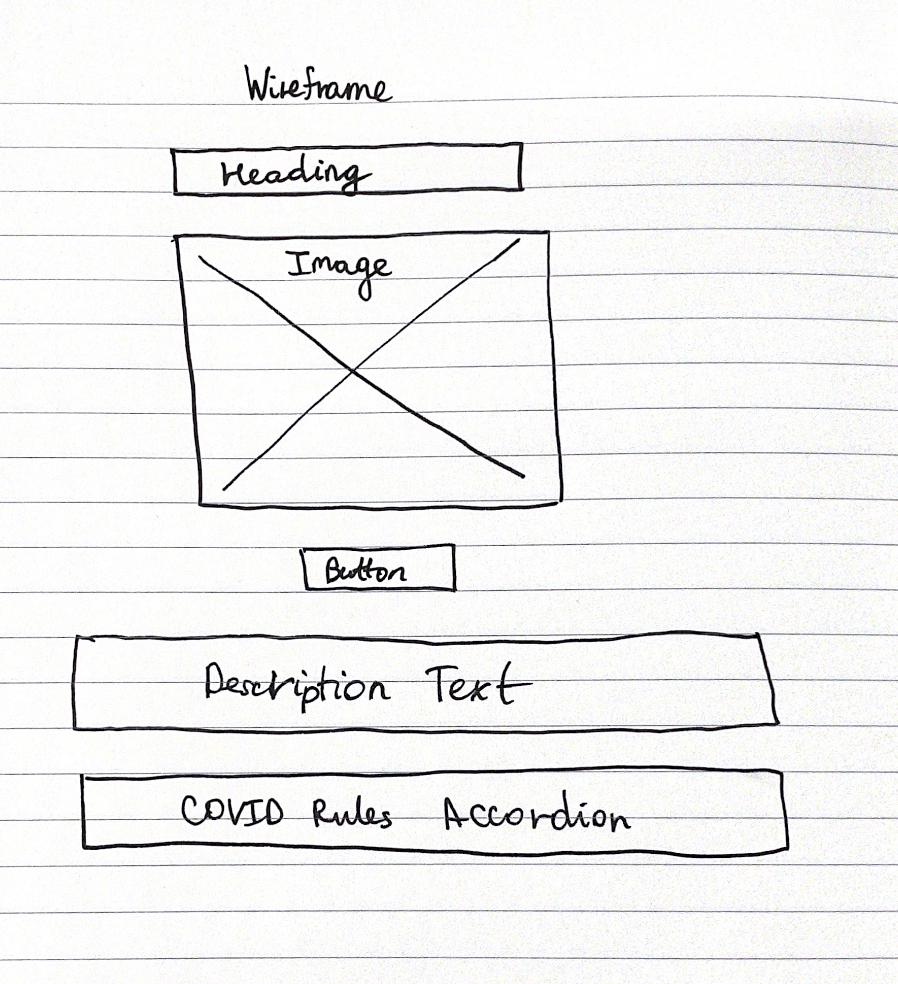 Wireframe
Heading
Image
Button
Description Text
COVID Rules Accordion